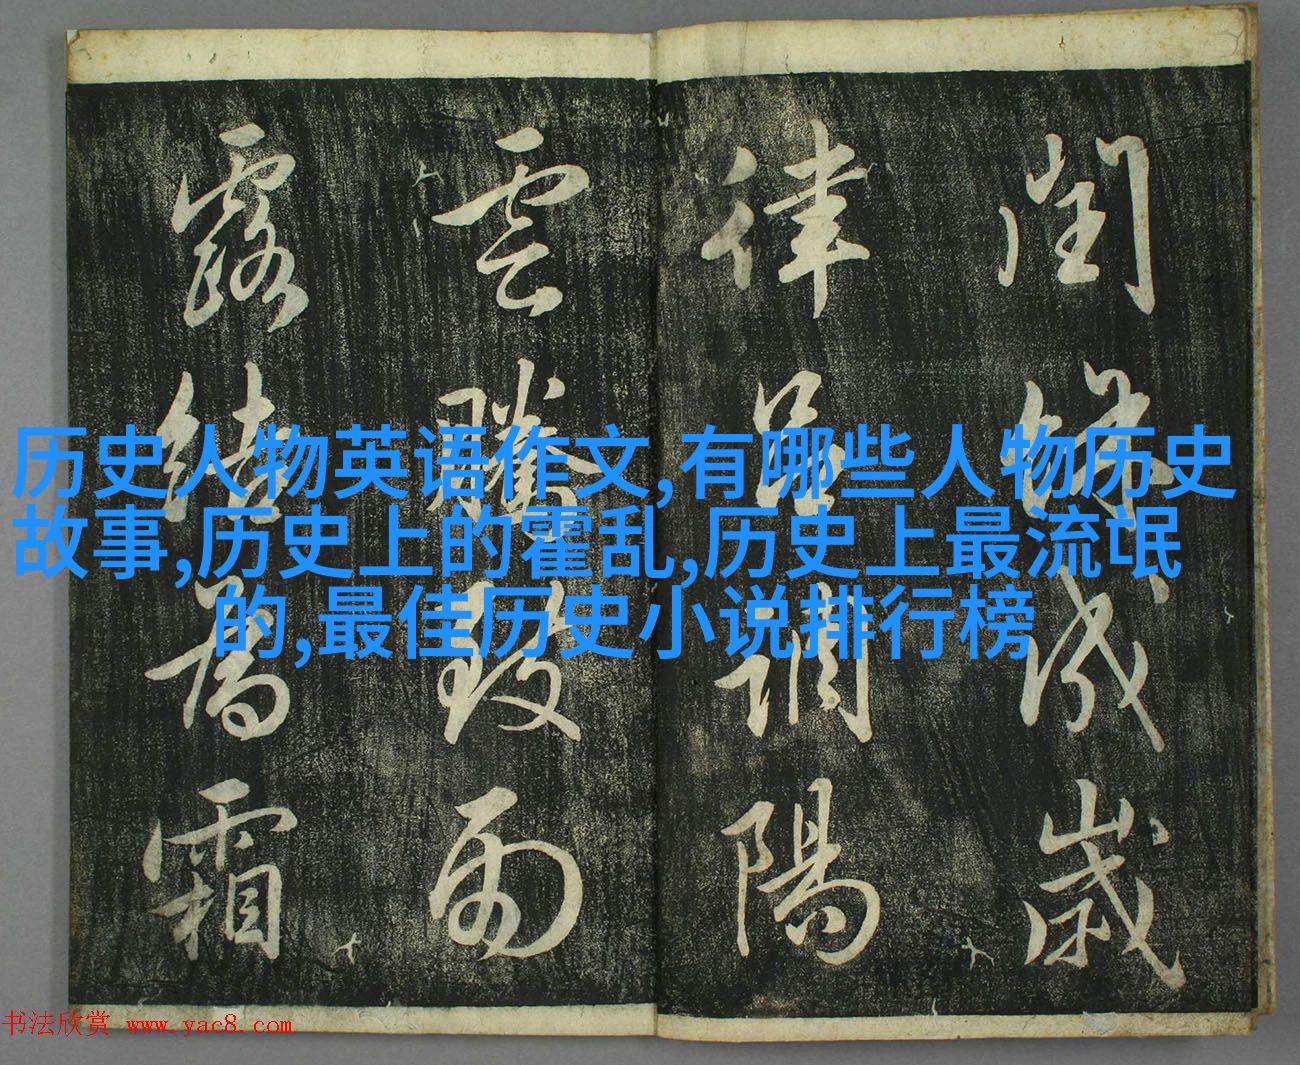 閏餘成歲
律呂調陽
雲騰致雨
露結為霜
历史人物英语作文,有哪些人物历史
故事,历史上的霍乱,历史上最流氓
的,最佳历史小说排行榜
书法欣赏 www.yac8.com